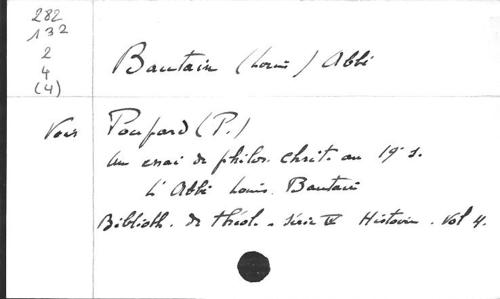 282
132
2
4
(4)
Bautain (Louis) Abbé
Voir Poupard (P.)
Un essai de philos. chrét. au 19e s.
L'Abbé Louis Bautain
Biblioth. de théol. - série IV Histoire. Vol 4.